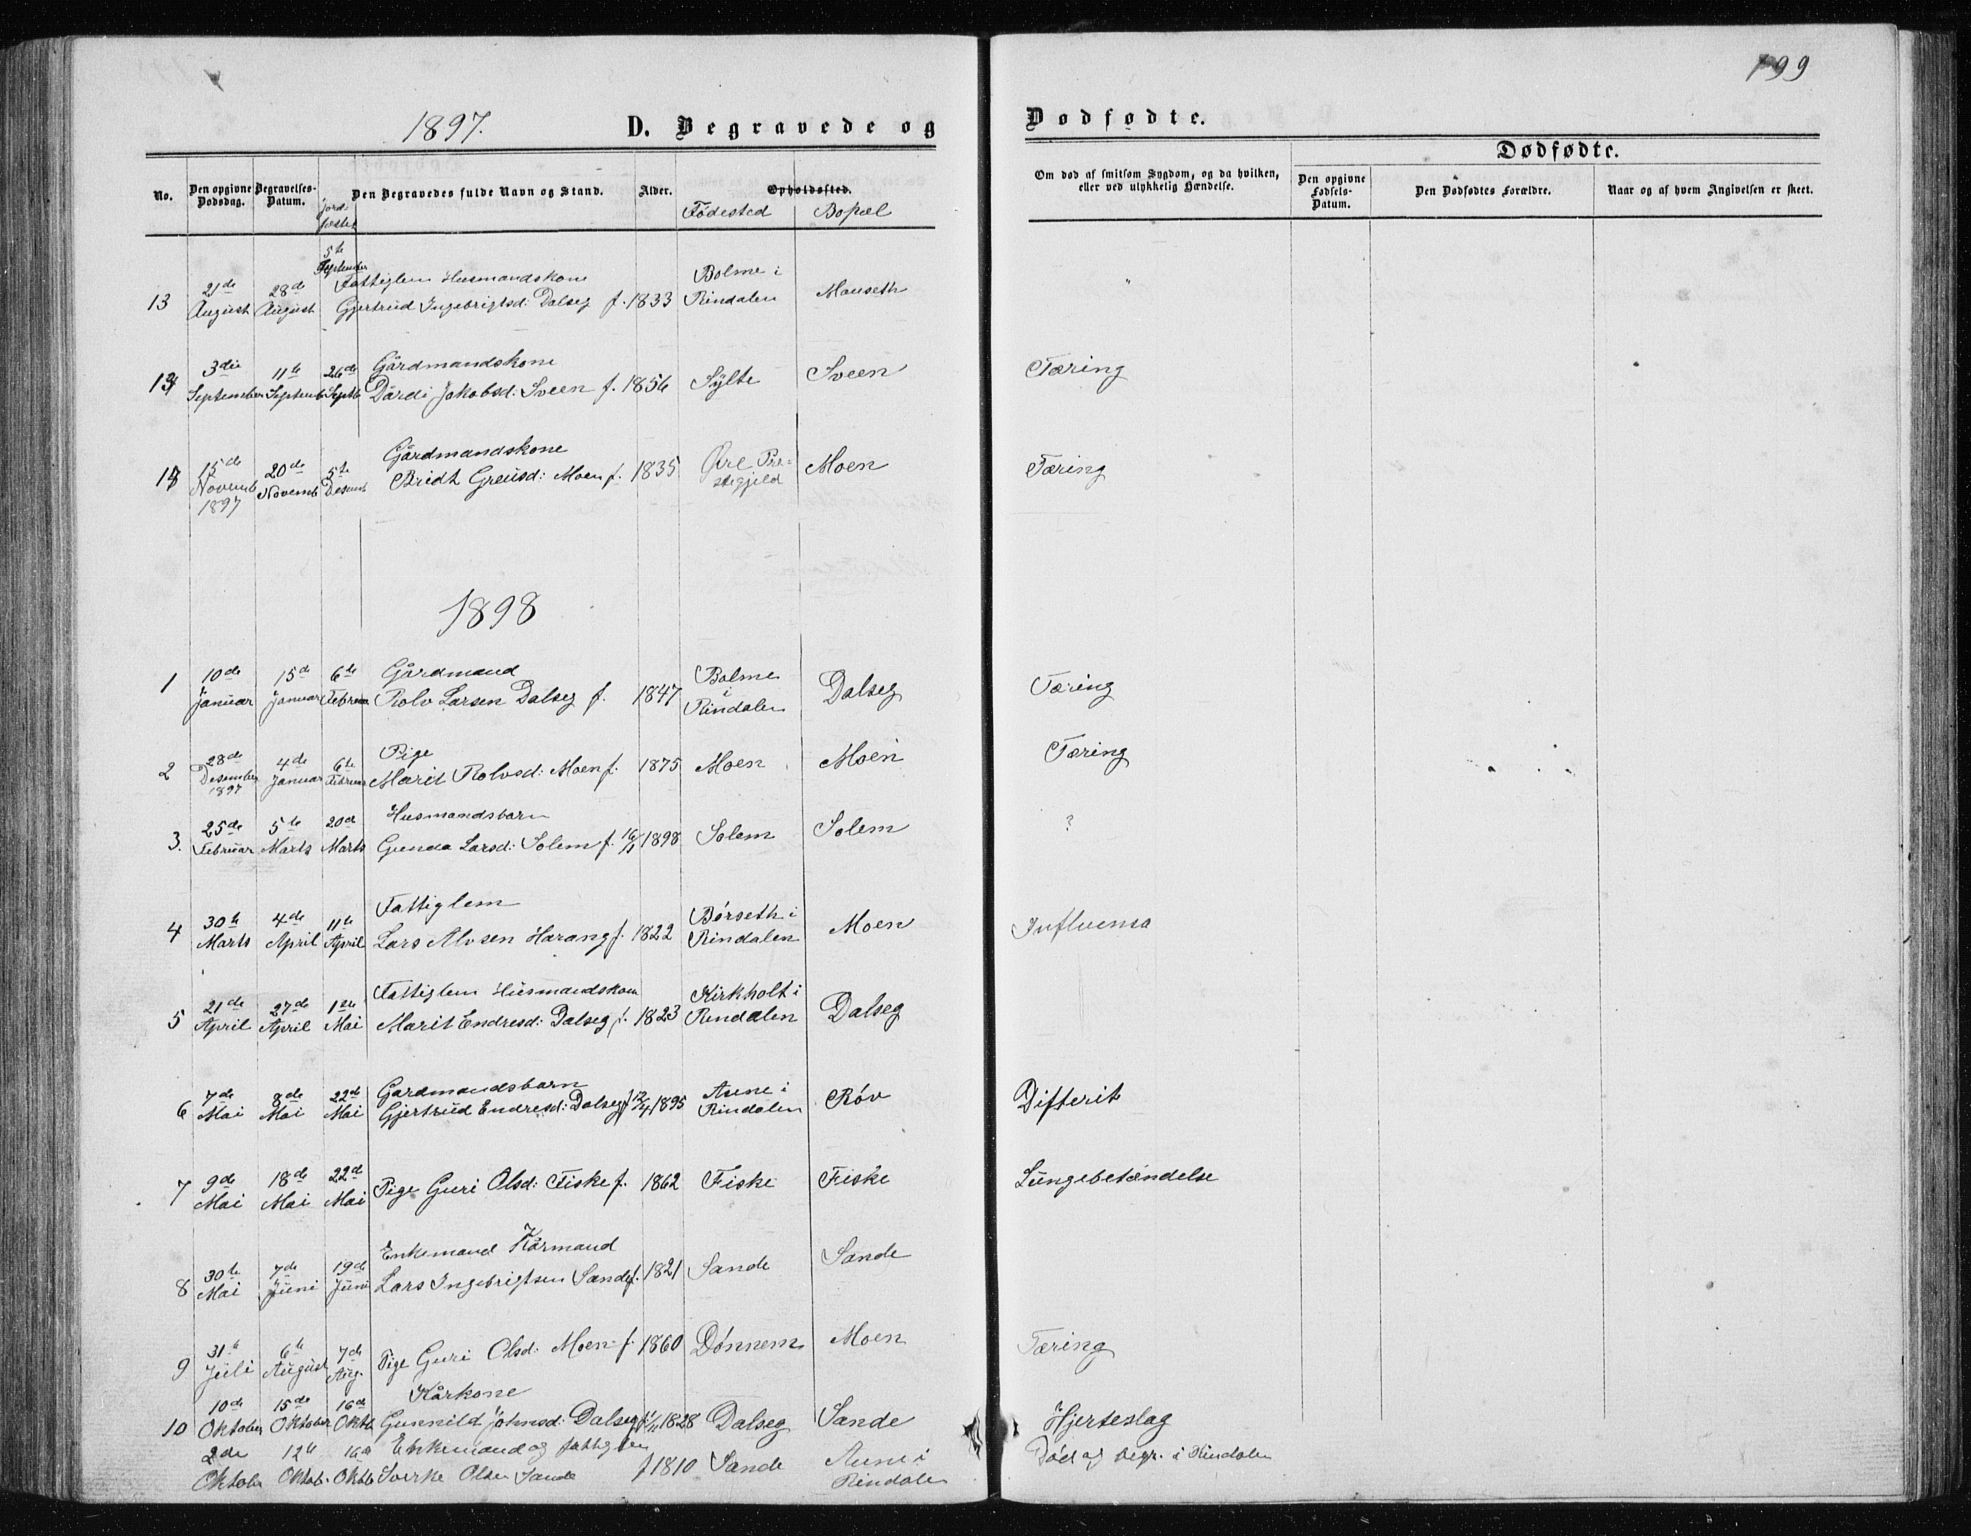 199
1897.
D. Begravede og
Dødfødte.
No.
Den opgivne Dødsdag.
Begravelses-Datum.
Jord fæstet
Den Begravedes fulde Navn og Stand.
Alder.
Opholdssted.
Fødested
Bopæl
Om død af smitsom Sygdom, og da hvilken, eller ved ulykkelig Hændelse.
Dødfødte.
Den opgivne Fødsels-Datum.
Den Dødfødtes Forældre.
Naar og af hvem Angivelsen er skeet.
5te September Fattiglem Husmandskone Bolme i
13 21de August 28de August Gjertrud Ingebrigtsd: Dalseg f. 1833 Rindalen Mauseth
3die 11te 26de Gårdmandskone
13 September Septemb Septb Dårdi Jakobsd: Sveen f. 1856 Sylte Sveen Tæring
15de 20de 5te Gårdmandskone Øre Præ-
Novemb 1897 Novemb Desemb Bridt Greusd: Moen f. 1835 stegjeld Moen Tæring
1898
10de 15d 6te Gårdmand Bolme
1 Januar Januar Februar Rolv Larsen Dalseg f. 1847 i Rindalen Dalseg Tæring
28de 4de 6te Pige
2 Desember 1897 Januar Februar Marit Rolvsd: Moen f. 1875 Moen Moen Tæring
25de 5te 20d Husmandsbarn
3. Februar Marts Marts Gunda Larsd: Solem f. 16/1 1898 Solem Solem ?
30te 4de 11te Fattiglem Børseth i
4 Marts April April Lars Alvsen Harang f. 1822 Rindalen Moen Influensa
21de 27de 1ste Fattiglem Husmandskone Kirkholt i
5 April April Mai Marit Endresd: Dalseg f. 1823 Rindalen Dalseg
7de 8de 22de Gardmandsbarn Aune i
6 Mai Mai Mai Gjertrud Endresd: Dalseg f 12/4 1895 Rindalen Røv Difterit
9d 18d 22d
7 Mai Mai Mai Pige Guri Olsd: Fiske f. 1862 Fiske Fiske Lungebetændelse
30te 7de 19d Enkemand Kårmand
8 Mai Juni Juni Lars Ingebrigtsen Sande f. 1821 Sande Sande
31te 6te 7de
9 Juli August Aug. Pige Guri Olsd: Moen f. 1860 Dønnem Moen Tæring
10de 15de 16de Kårkone
10 Oktober Oktober Oktb Gunnild Johnsd: Dalseg 1828 Dalseg Sande Hjerteslag
2de 12te 16d Enkemand og fattiglem Aune i
Oktober Oktob. Oktb Sverke Olsen Sande f 1810 Sande Rindalen Død og begr. i Rindalen